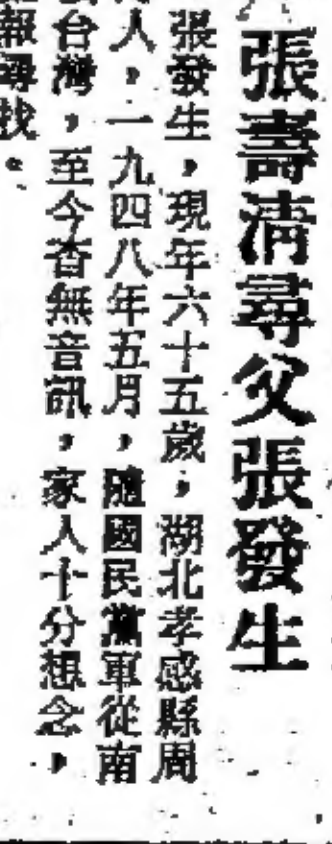 張壽清尋父張發生
張發生，現年六十五歲，湖北孝感縣周
人，一九四八年五月，隨國民黨軍從南
台灣，至今杳無音訊，家人十分想念，
報尋找。